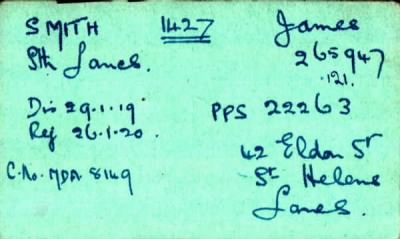 SMITH 1427 James
Sth Lancs. 265947
.121.
Dis 29.1.19
Rej 26.1.20. PPS 22263
42 Eldon St
C.No. MDA 8149 St Helens
Lancs.